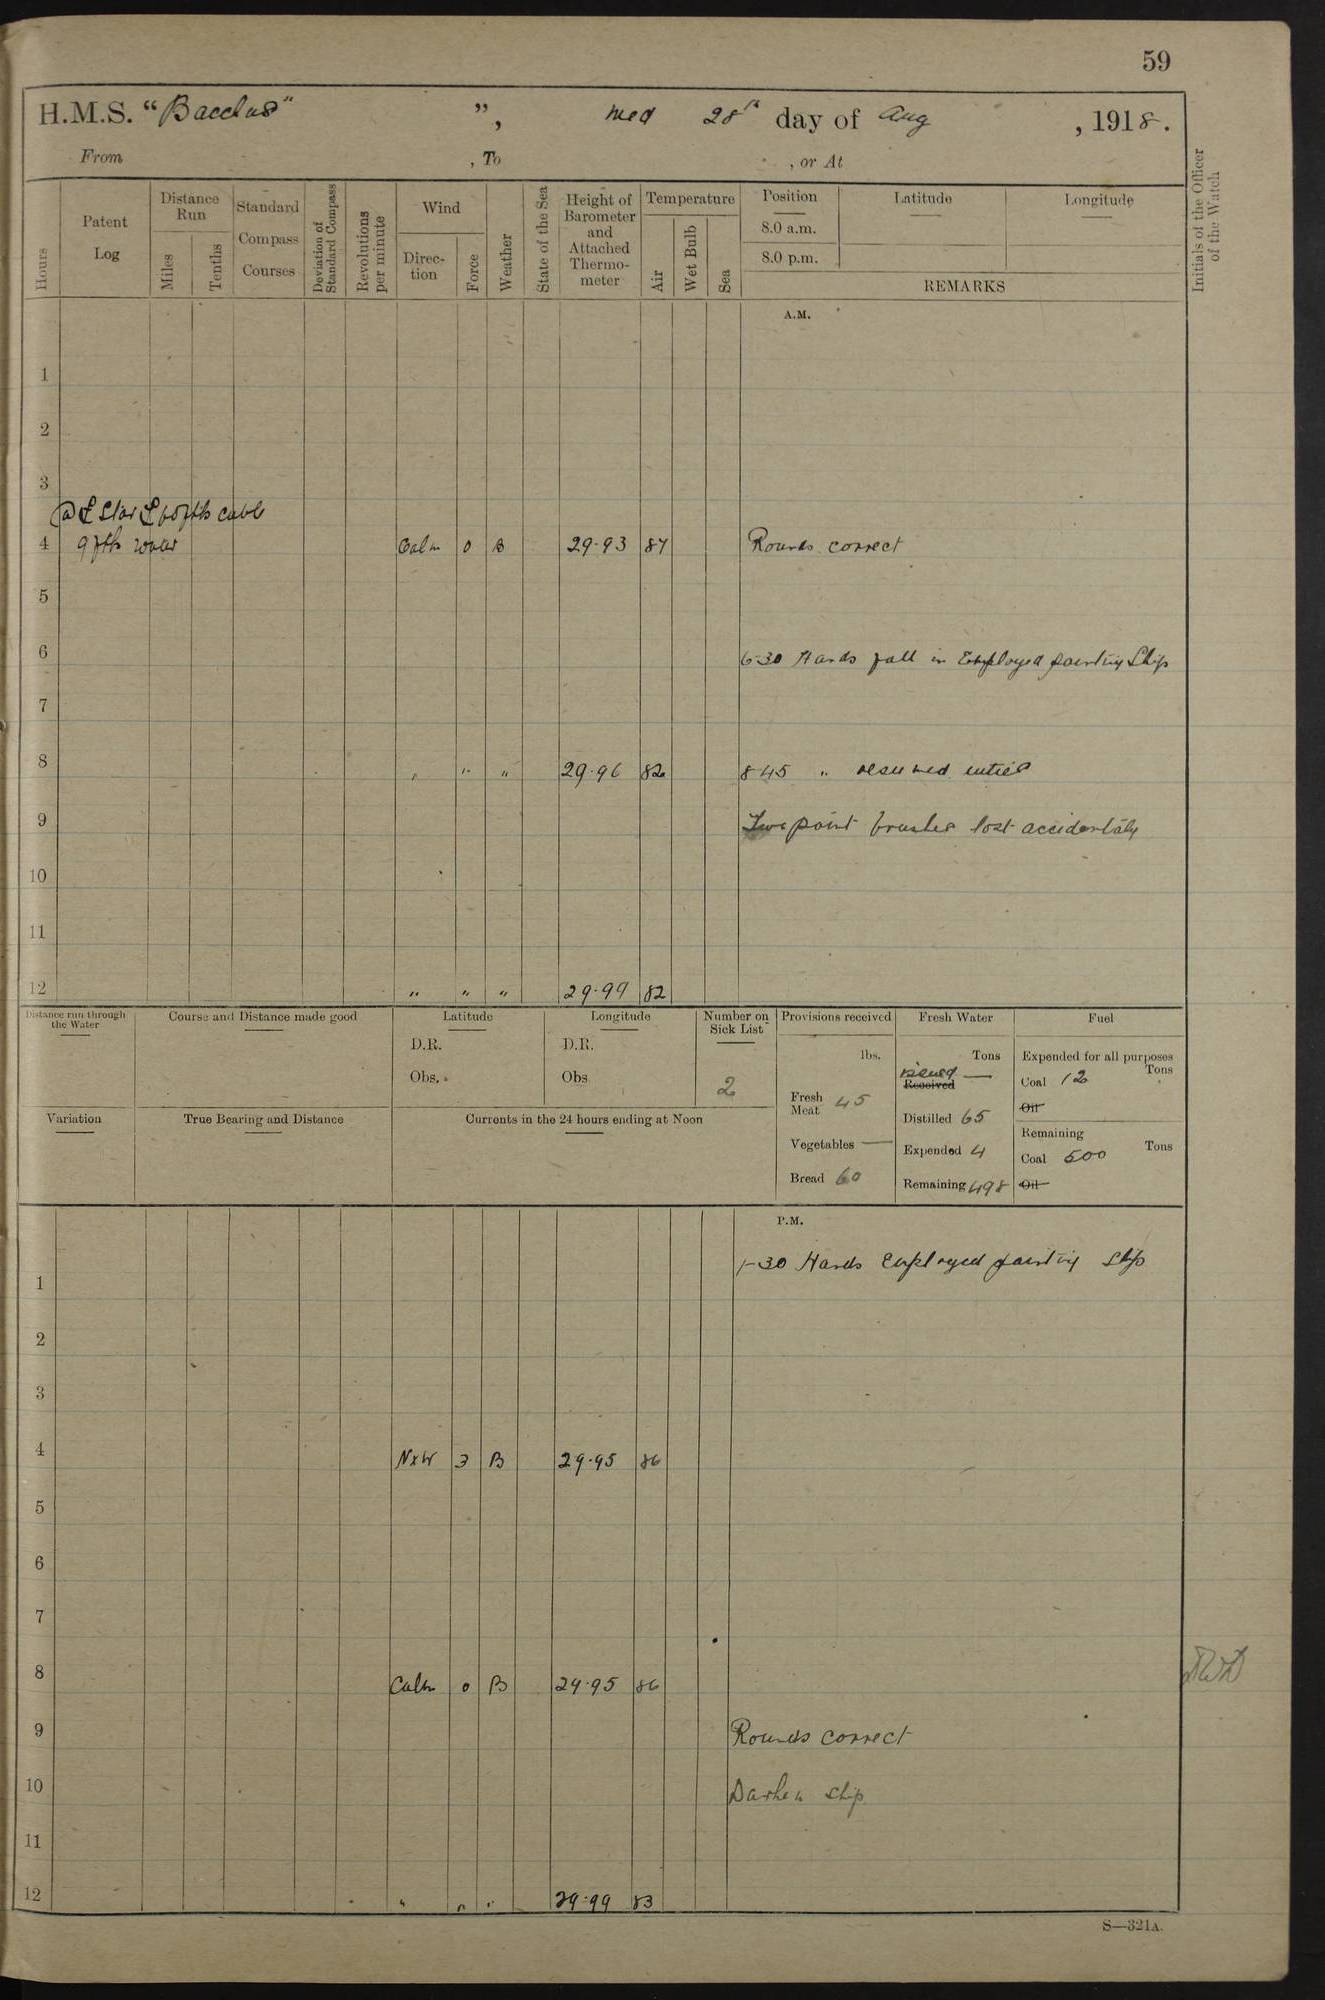 59
H.M.S. "Bacchus" ", Wed 28th day of Aug , 1918.
From , To , or At
Hours
Patent Log
Distance Run
Miles
Tenths
Standard Compass Courses
Deviation of Standard Compass
Revolutions per minute
Wind
Direction
Force
Weather
State of the Sea
Height of Barometer and Attached Thermometer
Temperature
Air
Wet Bulb
Sea
Position
8.0 a.m.
8.0 p.m.
Latitude
Longitude
REMARKS
Initials of the Officer of the Watch
A.M.
1
2
3
@ Star cable
4 9 fth water Calm 0 B 29·93 84 Rounds correct
5
6 6-30 Hands fall in Employed painting Ship
7
8 " " " 29·96 82 8-45 " resumed
9 Two paint brushes lost accidentaly
10
11
12 " " " 29·99 82
Distance run through the Water
Course and Distance made good
Latitude
D.R.
Obs.
Longitude
D.R.
Obs
Number on Sick List
2
Provisions received
lbs.
Fresh Meat 45
Vegetables —
Bread 60
Fresh Water
Tons
Issued —
Received
Distilled 65
Expended 4
Remaining 498
Fuel
Expended for all purposes
Tons
Coal 12
Oil
Remaining
Tons
Coal 500
Oil
Variation
True Bearing and Distance
Currents in the 24 hours ending at Noon
P.M.
1 1-30 Hands Employed painting Ship
2
3
4 NxW 3 B 29·95 86
5
6
7
8 Calm 0 B 29·95 86
9 Rounds correct
10 Darken ship
11
12 " " " 29·99 83
S—321A.